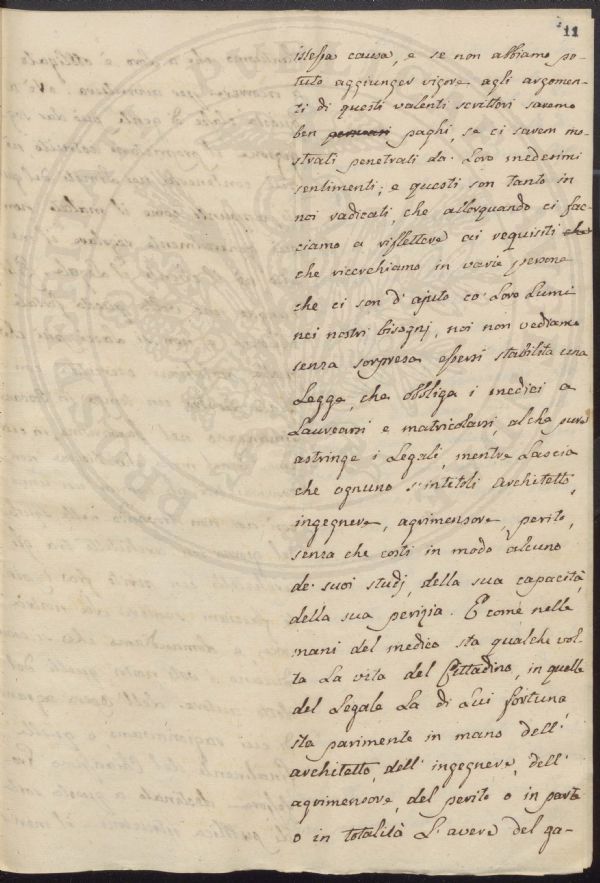 11
istessa causa, e se non abbiamo po-
tuto aggiunger vigore agli argomen-
ti di questi valenti scrittori saremo
ben paghi, se ci sarem mo-
strati penetrati da' Loro medesimi
sentimenti; e questi son tanto in
noi radicati, che allorquando ci fac-
ciamo a riflettere ai requisiti che
che ricerchiamo in varie persone
che ci son d'ajuto co' Loro Lumi
nei nostri bisogni, noi non vediamo
senza sorpresa essersi stabilita una
Legge, che obbliga i medici a
Laurearsi e matricolarsi, al che pure
astringe i Legali, mentre Lascia
che ognuno s'intitoli Architetto,
ingegnere, agrimensore, perito,
senza che costi in modo alcuno
de' suoi studj, della sua capacità,
della sua perizia. E come nelle
mani del medico sta qualche vol-
ta La vita del Cittadino, in quelle
del Legale La di Lui fortuna,
sta parimente in mano dell'
architetto, dell'ingegnere, dell'
agrimensore, del perito o in parte
o in totalità L'avere del ga-